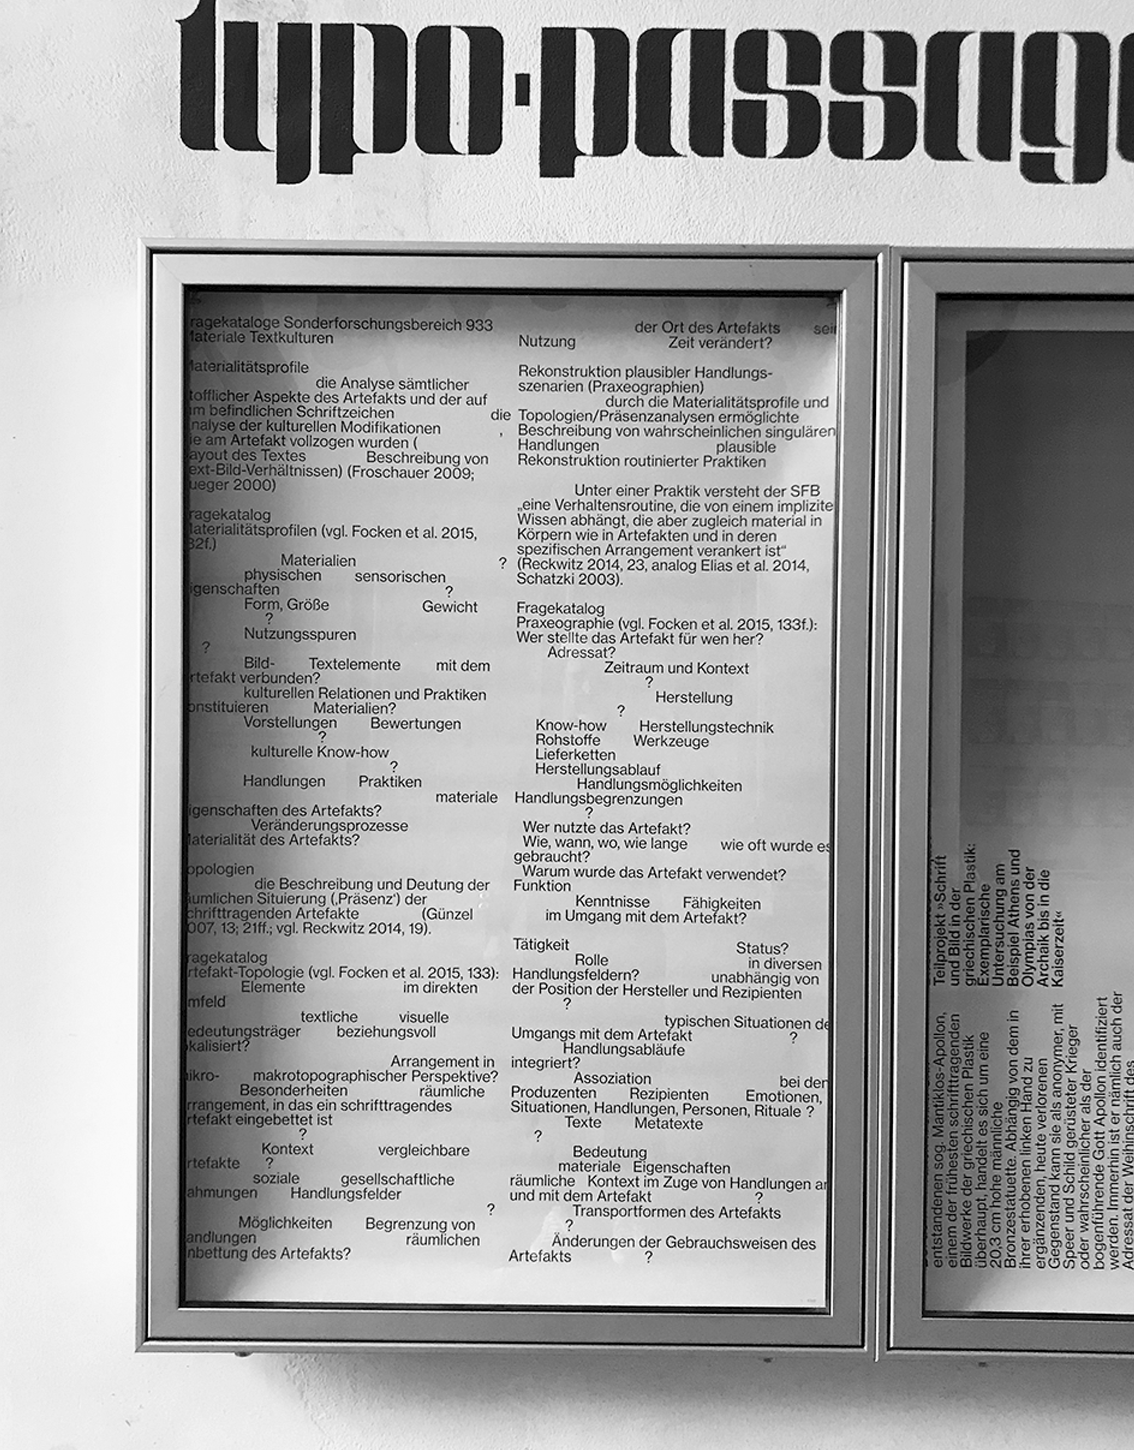 typo·passage
ragekataloge Sonderforschungsbereich 933
ateriale Textkulturen
aterialitätsprofile
die Analyse sämtlicher
tofflicher Aspekte des Artefakts und der auf
m befindlichen Schriftzeichen die
nalyse der kulturellen Modifikationen ,
ie am Artefakt vollzogen wurden (
ayout des Textes Beschreibung von
ext-Bild-Verhältnissen) (Froschauer 2009;
ueger 2000)
ragekatalog
aterialitätsprofilen (vgl. Focken et al. 2015,
32f.)
Materialien ?
physischen sensorischen
igenschaften ?
Form, Größe Gewicht
?
Nutzungsspuren
?
Bild- Textelemente mit dem
rtefakt verbunden?
kulturellen Relationen und Praktiken
onstituieren Materialien?
Vorstellungen Bewertungen
?
kulturelle Know-how
?
Handlungen Praktiken
materiale
igenschaften des Artefakts?
Veränderungsprozesse
aterialität des Artefakts?
opologien
die Beschreibung und Deutung der
äumlichen Situierung (‚Präsenz‘) der
chrifttragenden Artefakte (Günzel
007, 13; 21ff.; vgl. Reckwitz 2014, 19).
ragekatalog
rtefakt-Topologie (vgl. Focken et al. 2015, 133):
Elemente im direkten
mfeld
textliche visuelle
edeutungsträger beziehungsvoll
kalisiert?
Arrangement in
ikro- makrotopographischer Perspektive?
Besonderheiten räumliche
rrangement, in das ein schrifttragendes
rtefakt eingebettet ist
?
Kontext vergleichbare
rtefakte ?
soziale gesellschaftliche
ahmungen Handlungsfelder
?
Möglichkeiten Begrenzung von
andlungen räumlichen
nbettung des Artefakts?
der Ort des Artefakts sei
Nutzung Zeit verändert?
Rekonstruktion plausibler Handlungs-
szenarien (Praxeographien)
durch die Materialitätsprofile und
Topologien/Präsenzanalysen ermöglichte
Beschreibung von wahrscheinlichen singulären
Handlungen plausible
Rekonstruktion routinierter Praktiken
Unter einer Praktik versteht der SFB
„eine Verhaltensroutine, die von einem implizite
Wissen abhängt, die aber zugleich material in
Körpern wie in Artefakten und in deren
spezifischen Arrangement verankert ist“
(Reckwitz 2014, 23, analog Elias et al. 2014,
Schatzki 2003).
Fragekatalog
Praxeographie (vgl. Focken et al. 2015, 133f.):
Wer stellte das Artefakt für wen her?
Adressat?
Zeitraum und Kontext
?
Herstellung
?
Know-how Herstellungstechnik
Rohstoffe Werkzeuge
Lieferketten
Herstellungsablauf
Handlungsmöglichkeiten
Handlungsbegrenzungen
?
Wer nutzte das Artefakt?
Wie, wann, wo, wie lange wie oft wurde es
gebraucht?
Warum wurde das Artefakt verwendet?
Funktion
Kenntnisse Fähigkeiten
im Umgang mit dem Artefakt?
Tätigkeit Status?
Rolle in diversen
Handlungsfeldern? unabhängig von
der Position der Hersteller und Rezipienten
?
typischen Situationen de
Umgangs mit dem Artefakt ?
Handlungsabläufe
integriert?
Assoziation bei der
Produzenten Rezipienten Emotionen,
Situationen, Handlungen, Personen, Rituale ?
Texte Metatexte
?
Bedeutung
materiale Eigenschaften
räumliche Kontext im Zuge von Handlungen an
und mit dem Artefakt ?
Transportformen des Artefakts
?
Änderungen der Gebrauchsweisen des
Artefakts ?
Teilprojekt »Schrift
und Bild in der
griechischen Plastik:
Exemplarische
Untersuchung am
Beispiel Athens und
Olympias von der
Archaik bis in die
Kaiserzeit«
entstandenen sog. Mantiklos-Apollon,
einem der frühesten schrifttragenden
Bildwerke der griechischen Plastik
überhaupt, handelt es sich um eine
20,3 cm hohe männliche
Bronzestatuette. Abhängig von dem in
ihrer erhobenen linken Hand zu
ergänzenden, heute verlorenen
Gegenstand kann sie als anonymer, mit
Speer und Schild gerüsteter Krieger
oder wahrscheinlicher als der
bogenführende Gott Apollon identifiziert
werden. Immerhin ist er nämlich auch der
Adressat der Weihinschrift des